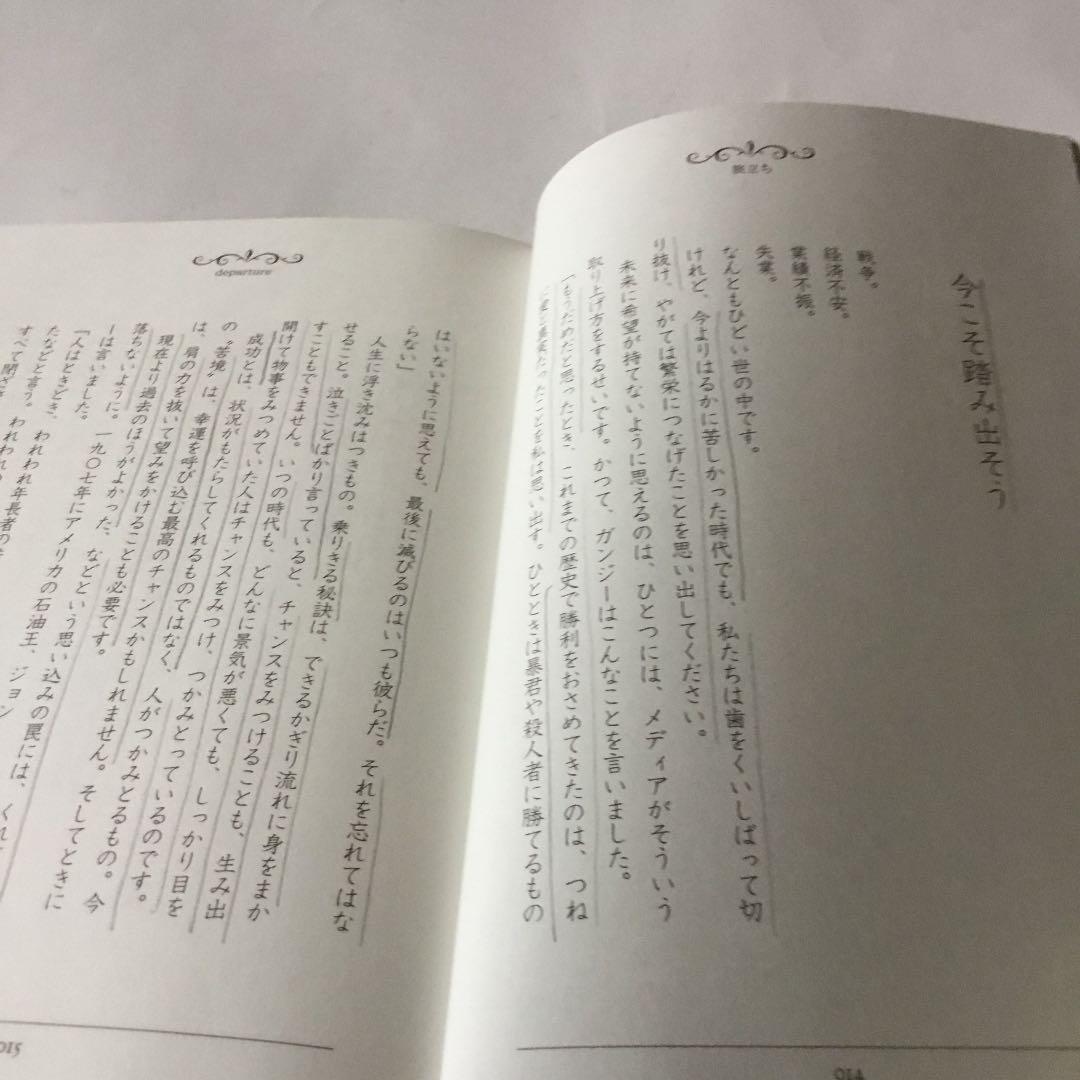 旅立ち
今こそ踏み出そう
戦争。
経済不安。
業績不振。
失業。
なんともひどい世の中です。
けれど、今よりはるかに苦しかった時代でも、私たちは歯をくいしばって切
り抜け、やがては繁栄につなげたことを思い出してください。
未来に希望が持てないように思えるのは、ひとつには、メディアがそういう
取り上げ方をするせいです。かつて、ガンジーはこんなことを言いました。
「もうだめだと思ったとき、これまでの歴史で勝利をおさめてきたのは、つね
に愛と真実だったことを私は思い出す。ひとときは暴君や殺人者に勝てるもの
014
departure
はいないように思えても、最後に滅びるのはいつも彼らだ。それを忘れてはな
らない」
人生に浮き沈みはつきもの。乗りきる秘訣は、できるかぎり流れに身をまか
せること。泣きごとばかり言っていると、チャンスをみつけることも、生み出
すこともできません。いつの時代も、どんなに景気が悪くても、しっかり目を
開けて物事をみつめていた人はチャンスをみつけ、つかみとっているのです。
成功とは、状況がもたらしてくれるものではなく、人がつかみとるもの。今
の“苦境”は、幸運を呼び込む最高のチャンスかもしれません。そしてときに
は、肩の力を抜いて望みをかけることも必要です。
現在より過去のほうがよかった、などという思い込みの罠には、くれ
落ちないように。一九〇七年にアメリカの石油王、ジョン
ーは言いました。
「人はときどき、
たなどと言う。われわれ年長者の
すべて閉ざ
われわれ
015